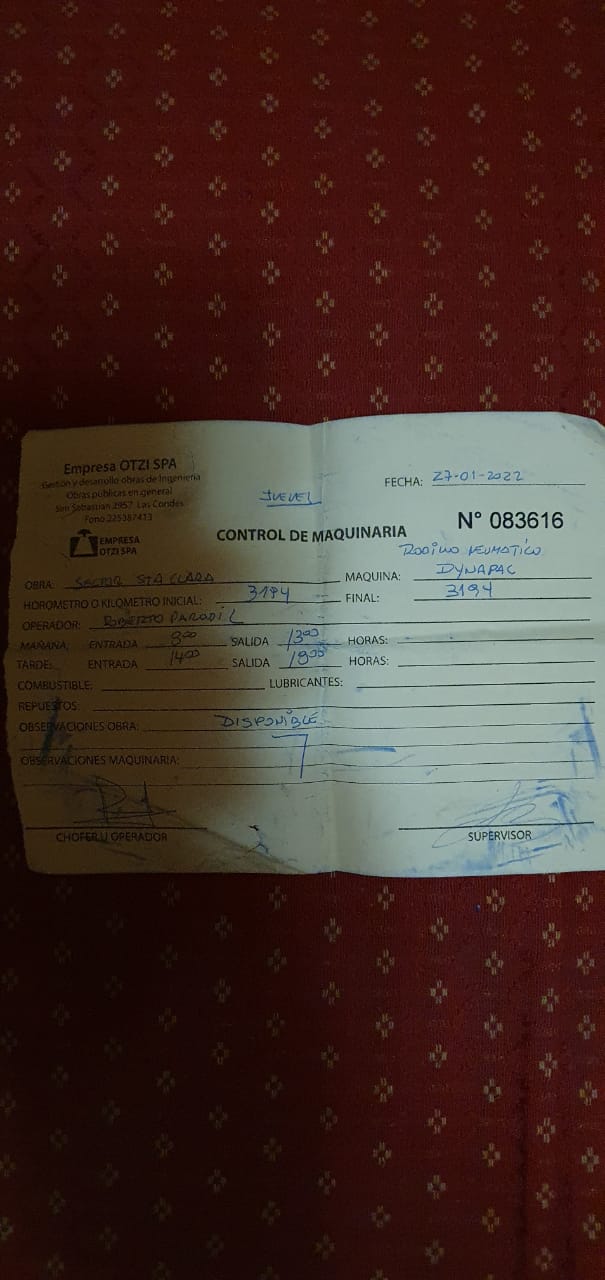 Empresa OTZI SPA
Gestión y desarrollo obras de Ingeniería
Obras públicas en general
San Sebastian 2957 Las Condes
Fono 225387413
EMPRESA
OTZI SPA
JUEVES
FECHA: 27-01-2022
CONTROL DE MAQUINARIA
N° 083616
RODILLO NEUMATICO
OBRA: SECTOR STA CLARA MAQUINA: DYNAPAC
HOROMETRO O KILOMETRO INICIAL: 3194 FINAL: 3194
OPERADOR: ROBERTO
MAÑANA: ENTRADA 8:00 SALIDA 13:00 HORAS:
TARDE: ENTRADA 14:00 SALIDA 18:00 HORAS:
COMBUSTIBLE: LUBRICANTES:
REPUESTOS:
OBSERVACIONES OBRA: DISPONIBLE
OBSERVACIONES MAQUINARIA:
CHOFER U OPERADOR SUPERVISOR